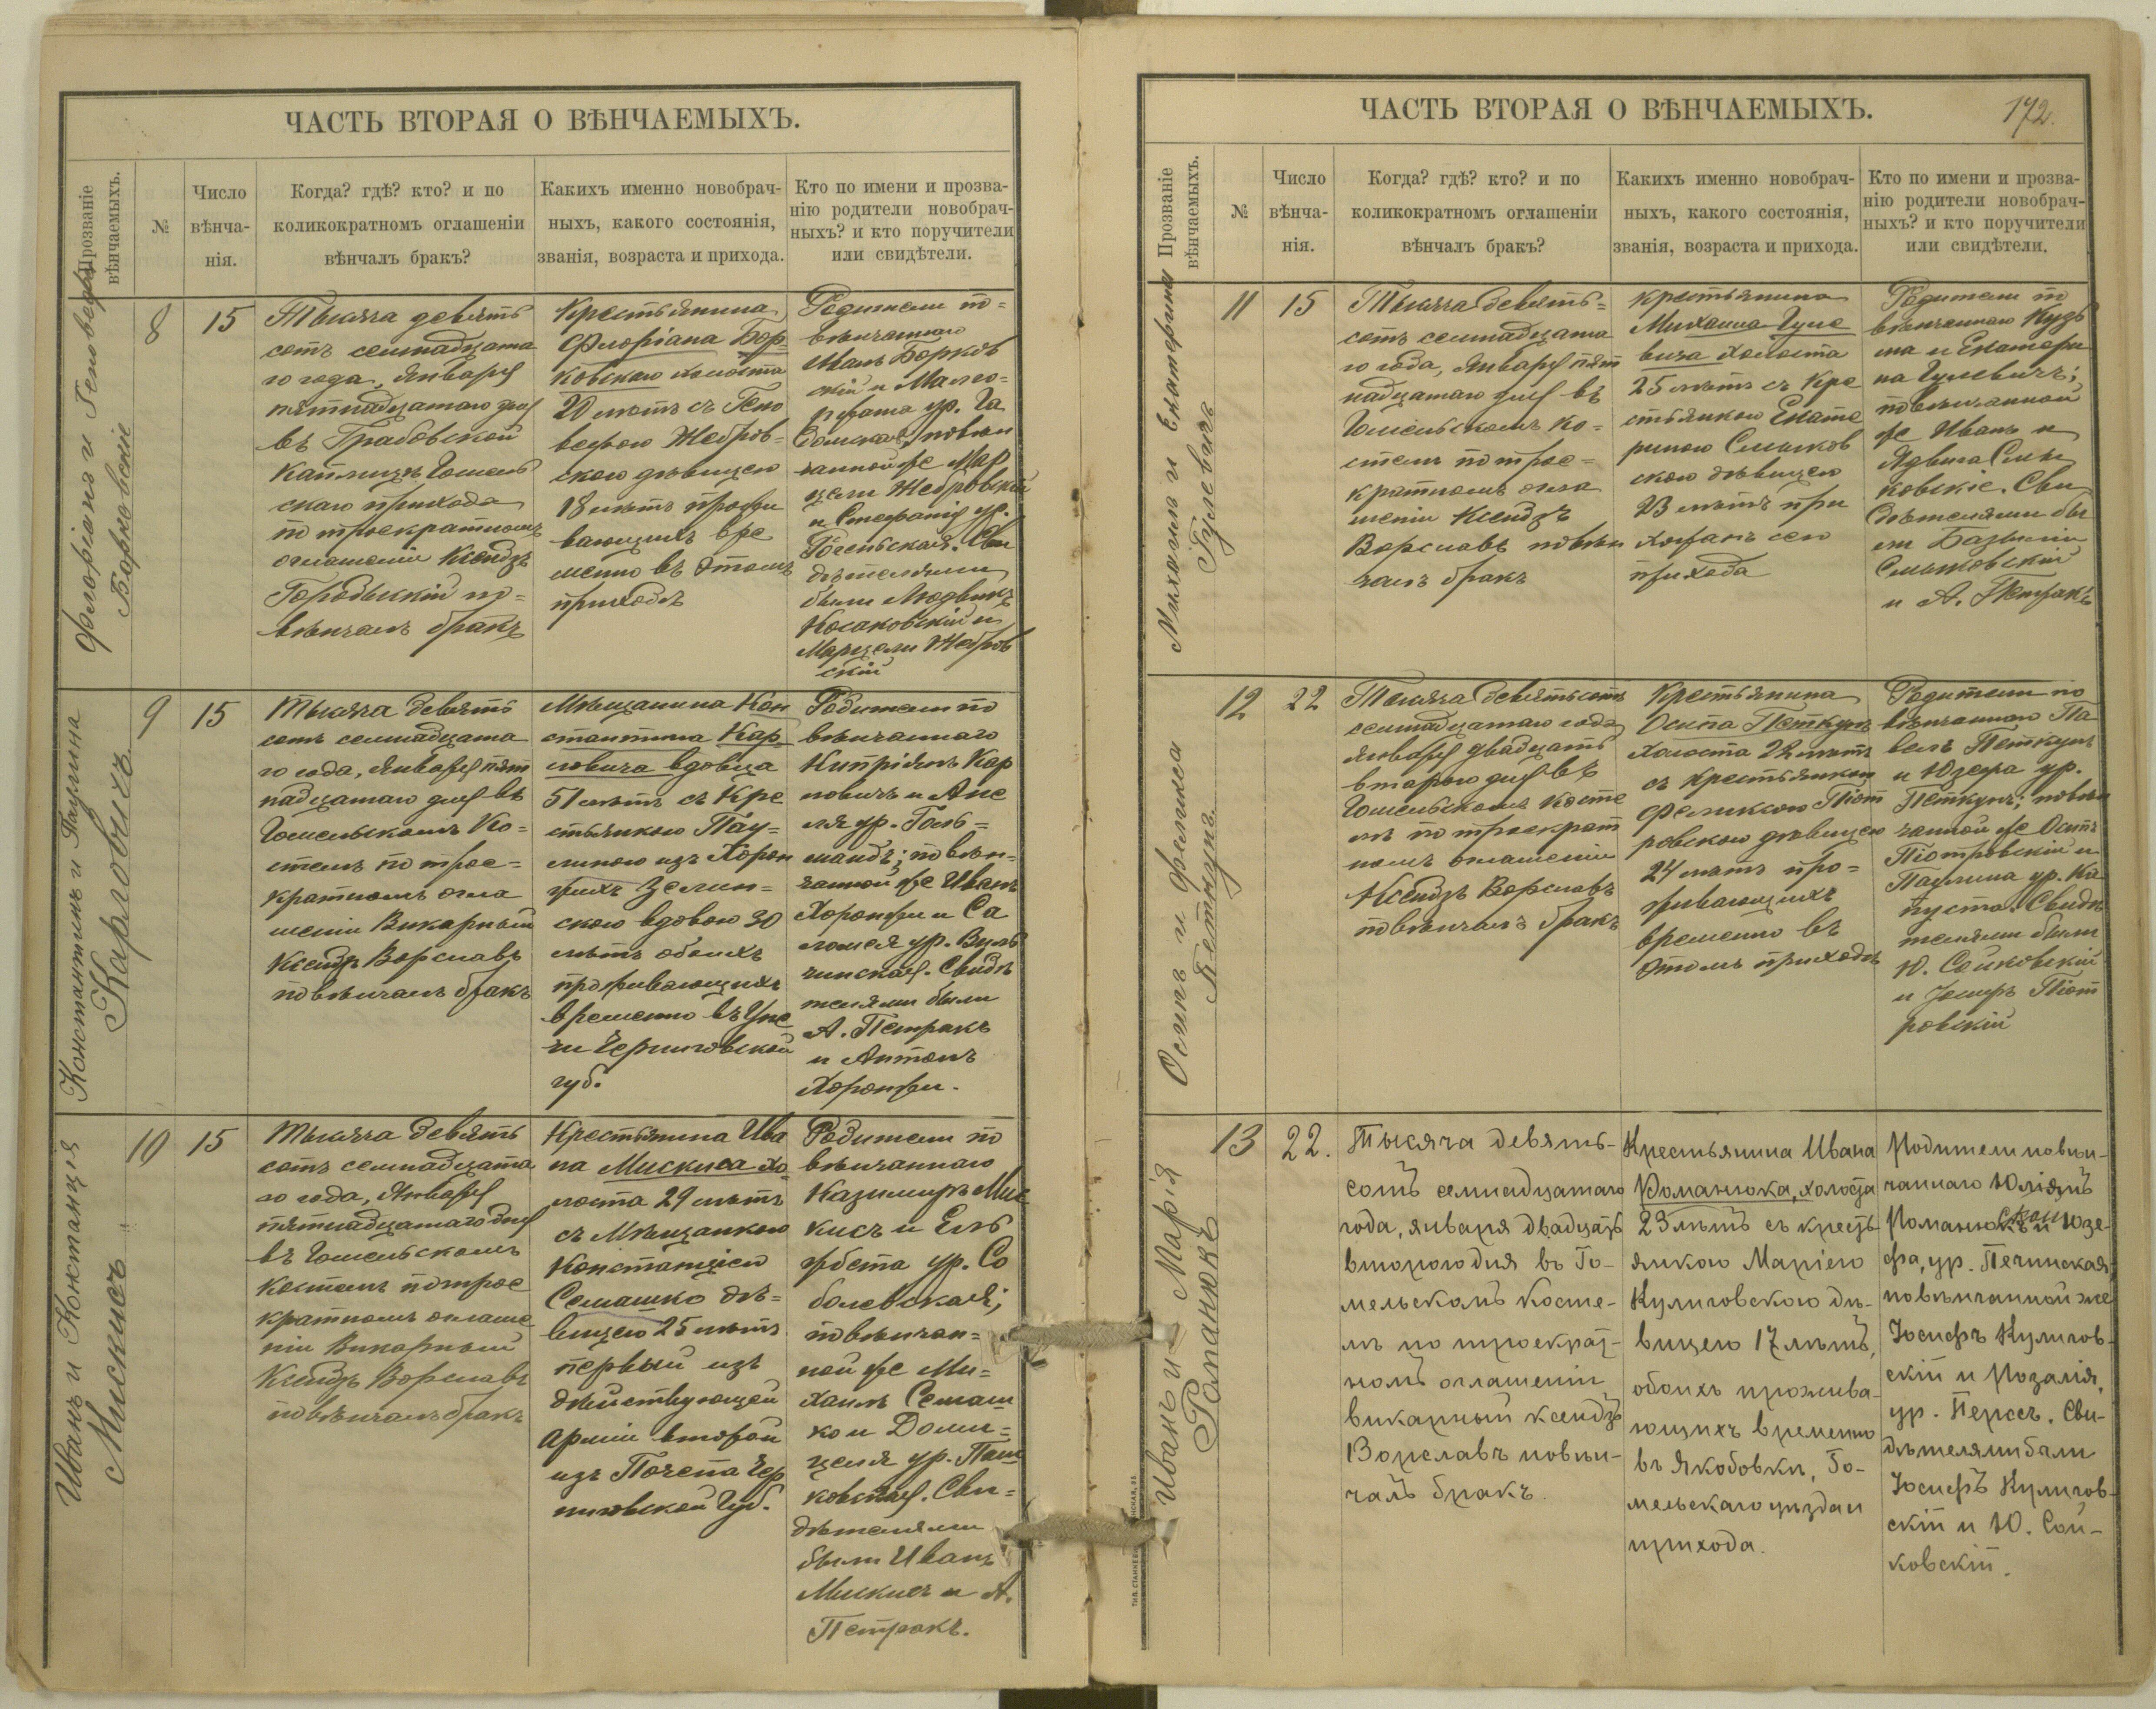 ЧАСТЬ ВТОРАЯ О ВѢНЧАЕМЫХЪ.
Прозваніе
вѣнчаемыхъ.
№
Число
вѣнча-
нія.
Когда? гдѣ? кто? и по
коликократномъ оглашеніи
вѣнчалъ бракъ?
Какихъ именно новобрач-
ныхъ, какого состоянія,
званія, возраста и прихода.
Кто по имени и прозва-
нію родители новобрач-
ныхъ? и кто поручители
или свидѣтели.
Флоріанъ и Геновефа
Борковскіе
8
15
Тысяча девять
сотъ семнадцата
го года, Января
пятнадцатаго дня
въ Грабовской
Каплицѣ Гомель
скаго прихода
по троекратномъ
оглашеніи Ксендзъ
по=
вѣнчалъ бракъ
Крестьянина
Флоріана Бор
ковскаго холоста
20 лѣтъ съ Гено
вефою Жебров=
скою дѣвицею
18 лѣтъ прожи
вающихъ вре
менно въ этомъ
приходѣ
Родители по=
вѣнчаннаго
Иванъ Борков
скій и Малго=
ржата ур. Га
повѣн
чанной же Мар
цели Жебровскій
и Стефанія ур.
Сви
дѣтелями
были Людвикъ
Косаковскій и
Марцели Жебров
скій
Константинъ и Паулина
Карловичъ
9
15
Тысяча девять
сотъ семнадцата
го года, Января пят
надцатаго дня въ
Гомельскомъ Ко=
стелѣ по трое=
кратномъ огла
шеніи Викарный
Ксендзъ Ворславъ
повѣнчалъ бракъ
Мѣщанина Кон
стантина Кар
ловича вдовца
51 лѣтъ съ Кре
стьянкою Пау=
линою изъ Хорон
жихъ Зелин=
скою вдовою 30
лѣтъ обоихъ
проживающихъ
временно въ Уне
чи Черниговской
губ.
Родители по
вѣнчаннаго
Кипріянъ Кар
ловичъ и Ане
ля ур. Голь=
мандъ; повѣн=
чанной же Иванъ
Хоронжи и Са
ломея ур. Вуль
чинская. Свидѣ
телями были
А. Петракъ
и Антонъ
Хоронжи.
Иванъ и Констанція
Мискисъ
10
15
Тысяча девять
сотъ семнадцата
го года, Января
пятнадцатаго дня
въ Гомельскомъ
костелѣ по трое
кратномъ оглаше
ніи Викарный
Ксендзъ Ворславъ
повѣнчалъ бракъ
Крестьянина Ива
на Мискиса хо
лоста 29 лѣтъ
съ Мѣщанкою
Констанціею
Семашко дѣ=
вицею 25 лѣтъ
первый изъ
дѣйствующей
Арміи второй
изъ Почепа Чер
ниговской Губ.
Родители по
вѣнчаннаго
Казимиръ Мис
кисъ и Ель
жбета ур. Со
болевская;
повѣнчан=
ной же Ми=
хаилъ Семаш
ко и Доми=
целя ур. Паш
ковская. Сви=
дѣтелями
были Иванъ
Мискисъ и А.
Петракъ.
172.
ЧАСТЬ ВТОРАЯ О ВѢНЧАЕМЫХЪ.
Прозваніе
вѣнчаемыхъ.
№
Число
вѣнча-
нія.
Когда? гдѣ? кто? и по
коликократномъ оглашеніи
вѣнчалъ бракъ?
Какихъ именно новобрач-
ныхъ, какого состоянія,
званія, возраста и прихода.
Кто по имени и прозва-
нію родители новобрач-
ныхъ? и кто поручители
или свидѣтели.
Михаилъ и Екатерина
Гулевичъ
11
15
Тысяча девять=
сотъ семнадцата
го года, Января пят
надцатаго дня въ
Гомельскомъ ко=
стелѣ по трое=
кратномъ огла
шеніи Ксендзъ
Ворславъ повѣн
чалъ бракъ
крестьянина
Михаила Гуле
вича холоста
25 лѣтъ съ Кре
стьянкою Екате
риною Смыков
скою дѣвицею
23 лѣтъ при
хожанъ сего
прихода
Родители по
вѣнчаннаго Кузь
ма и Екатери
на Гулевичъ;
повѣнчанной
же Иванъ и
Ядвига Смы
ковскіе. Сви
дѣтелями бы
ли Базылій
Смыковскій
и А. Петракъ
Осипъ и Феликса
Петкунъ
12
22
Тысяча девятьсотъ
семнадцатаго года
Января двадцать
второго дня въ
Гомельскомъ Косте
лѣ по троекрат
номъ оглашеніи
Ксендзъ Ворславъ
повѣнчалъ бракъ
Крестьянина
Осипа Петкунъ
холоста 22 лѣтъ
съ Крестьянкою
Феликсою Піот
ровскою дѣвицею
24 лѣтъ про=
живающихъ
временно въ
этомъ приходѣ
Родители по
вѣнчаннаго Па
велъ Петкунъ
и Юзефа ур.
Петкунъ; повѣн
чанной же Осипъ
Піотровскій и
Паулина ур. Ка
пуста. Свидѣ
телями были
Ю. Сойковскій
и Іосифъ Піот
ровскій
Иванъ и Марія
Романюкъ
13
22.
Тысяча девять-
сотъ семнадцатаго
года, января двадцать
второго дня въ Го-
мельскомъ косте-
лѣ по троекрат-
номъ оглашеніи
викарный ксендзъ
Ворславъ повѣн-
чалъ бракъ.
Крестьянина Ивана
Романюка, холоста
23 лѣтъ съ кресть-
янкою Маріею
Кулиговскою дѣ-
вицею 17 лѣтъ,
обоихъ прожива-
ющихъ временно
въ Якобовкѣ, Го-
мельскаго уѣзда и
прихода.
Родители повѣн-
чаннаго Юліянъ
Романюкъ и Юзе-
фа, ур. Печинская,
повѣнчанной же
Іосифъ Кулигов-
скій и Розалія,
ур. Персъ. Сви-
дѣтелями были
Іосифъ Кулигов-
скій и Ю. Сой-
ковскій.